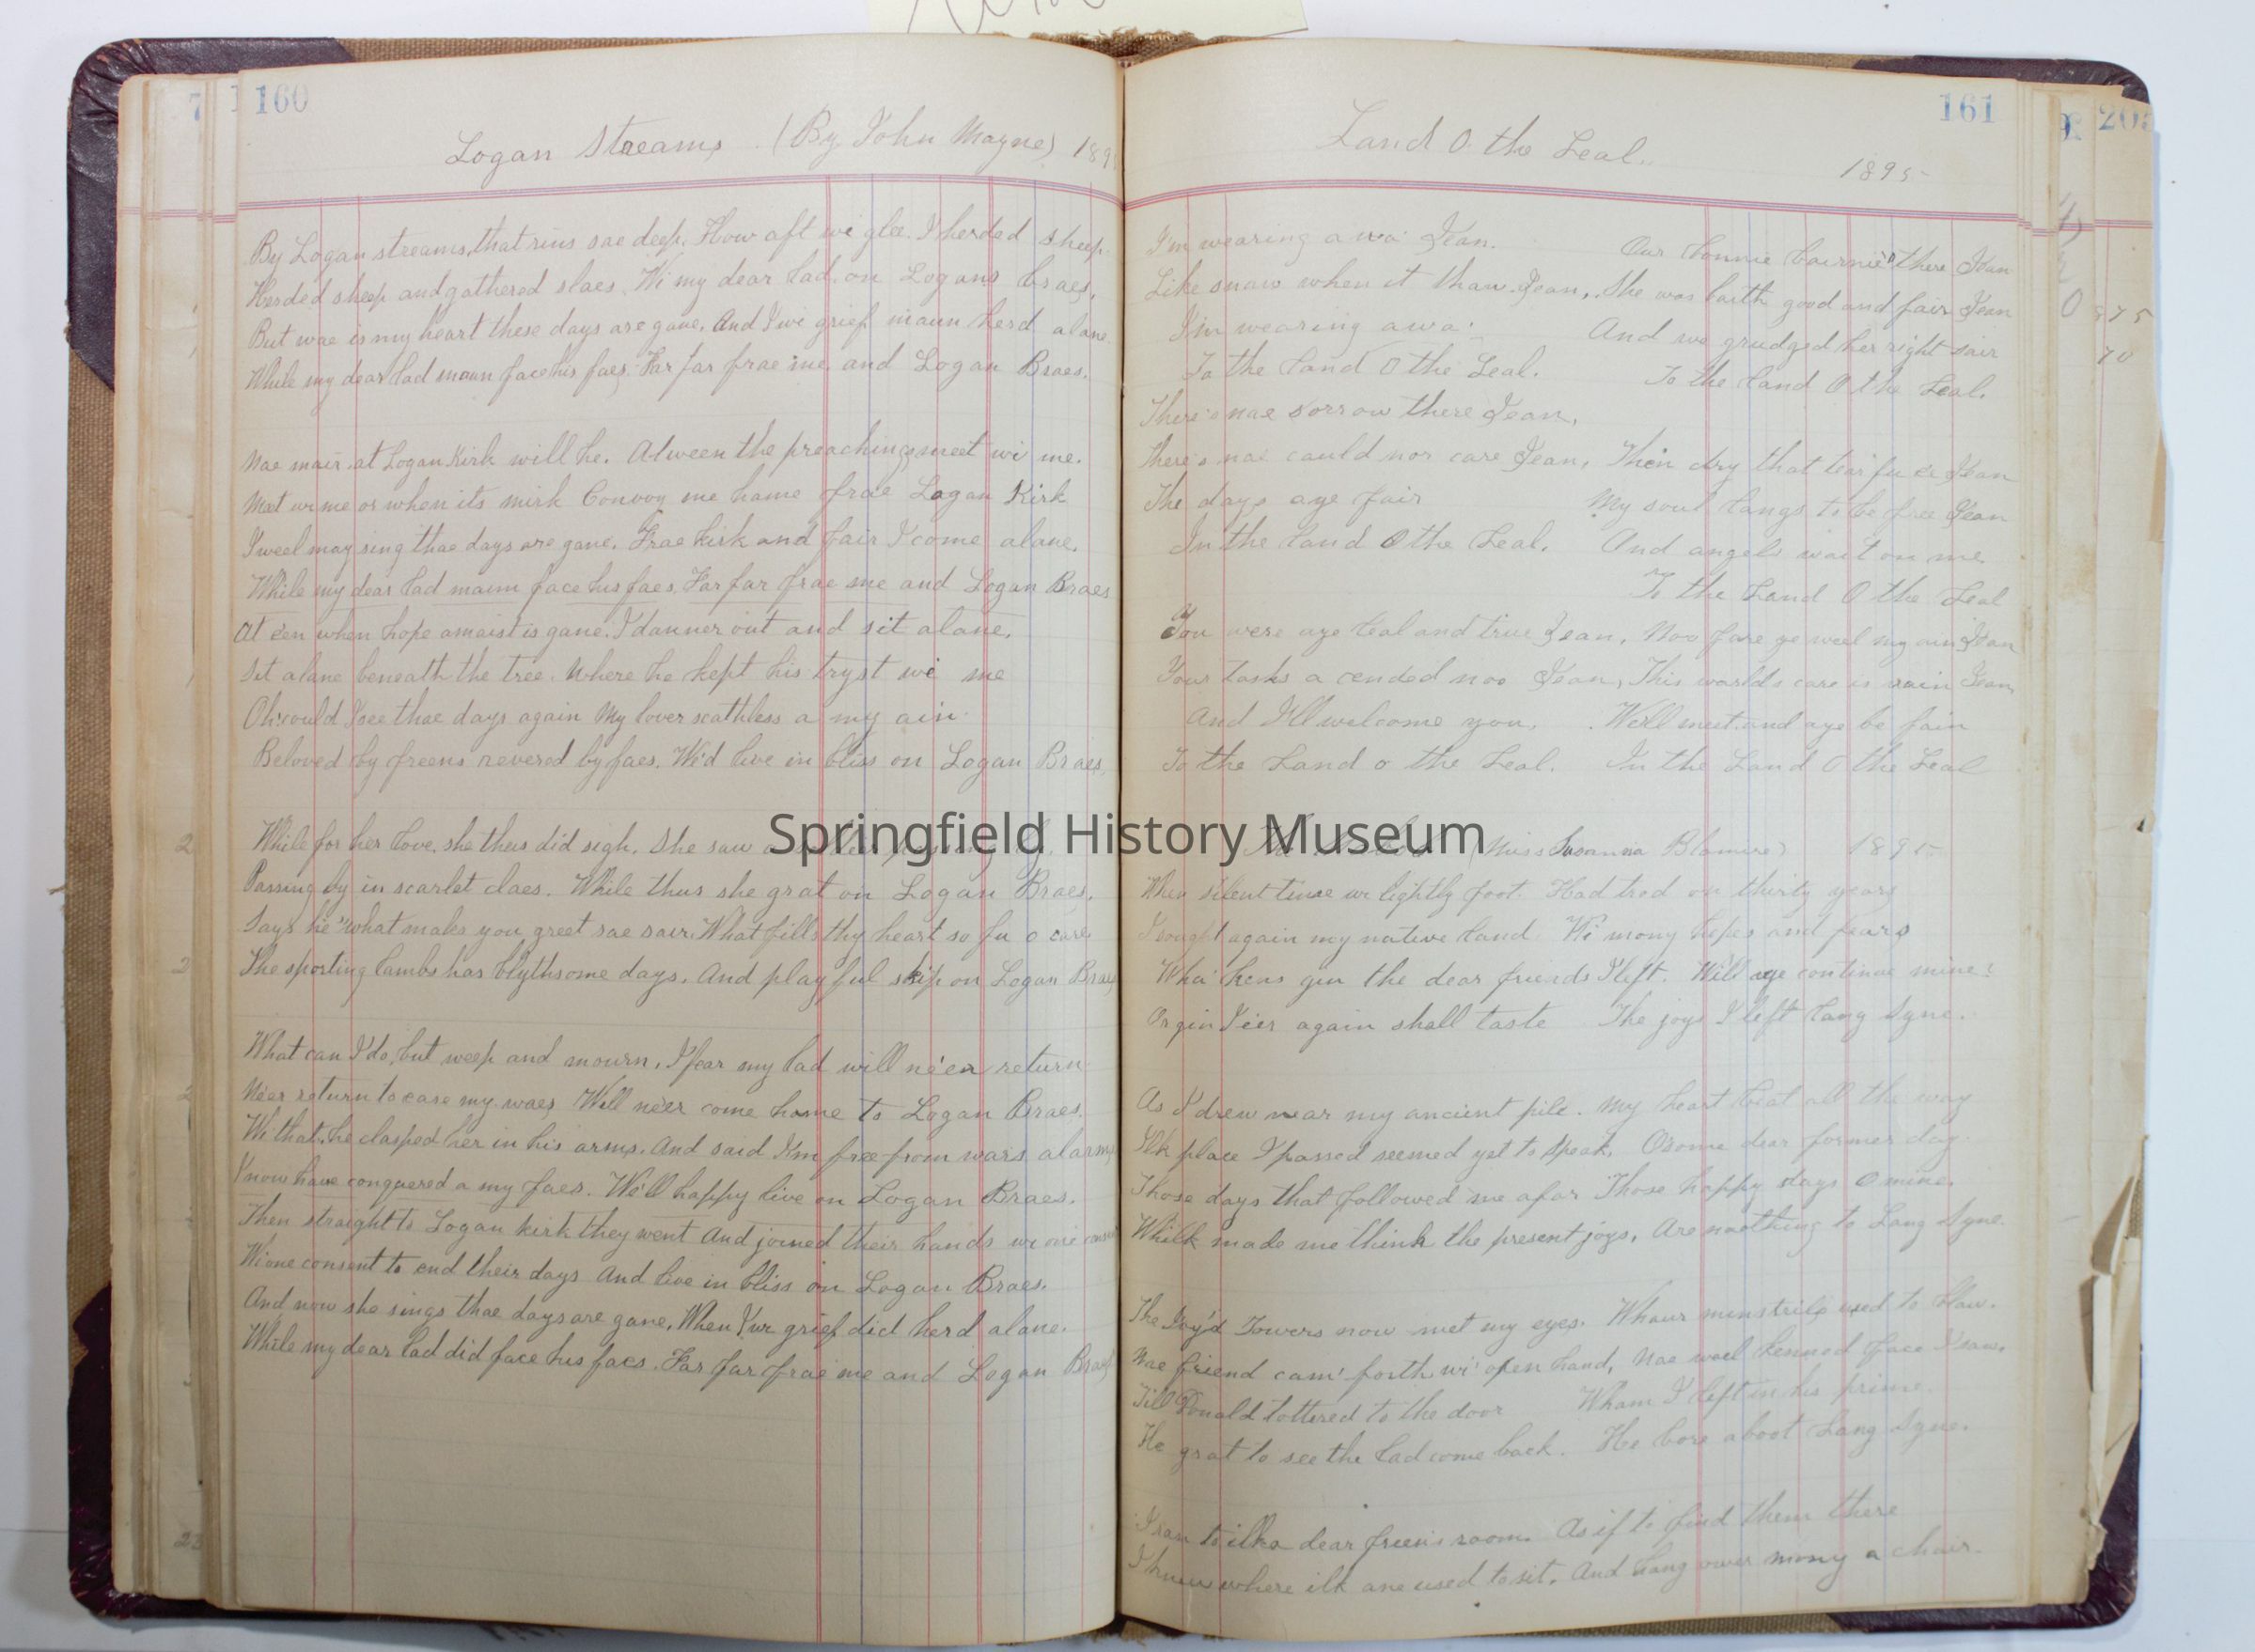 160
Logan Streams (By John Mayne) 189
By Logan streams, that rins sae deep, How aft wi glee, I herded sheep.
Herded sheep and gathered slaes, Wi my dear lad, on Logans braes,
But wae is my heart these days are gane, And I wi grief maun herd alane.
While my dear lad maun face his faes, Far far frae me and Logan Braes.
Nae mair at Logan Kirk will he. Atween the preachings meet wi me.
Meet wi me or when its mirk Convoy me hame frae Logan Kirk
I weel may sing thae days are gane. Frae kirk and fair I come alane.
While my dear lad maun face his faes, Far far frae me and Logan Braes
At e'en when hope amaist is gane. I danner out and sit alane.
Sit alane beneath the tree. Where he kept his tryst wi me
Oh could I see thae days again My lover scathless a my ain
Beloved by freens revered by faes, We'd live in bliss on Logan Braes,
While for her love, she thus did sigh. She saw
Passing by in scarlet claes. While thus she grat on Logan Braes.
Says he "what makes you greet sae sair. What fills thy heart so fu o care
The sporting lambs has blythsome days. And playful skip on Logan Braes
What can I do, but weep and mourn, I fear my lad will ne'er return
Ne'er return to ease my waes Will ne'er come home to Logan Braes.
Wi that, he clasped her in his arms, And said I'm free from wars alarms
I now have conquered a my faes. We'll happy live on Logan Braes.
Then straight to Logan kirk they went And joined their hands wi one consent
Wi one consent to end their days And live in bliss on Logan Braes.
And now she sings thae days are gane, When I wi grief did herd alane.
While my dear lad did face his faes. Far far frae me and Logan Braes
161
Land O. the Leal..
1895
I'm wearing awa' Jean.
Like snaw when it thaw Jean,
I'm wearing awa'
To the Land O the Leal.
There's nae sorrow there Jean,
There's nae cauld nor care Jean,
The days aye fair
In the Land O the Leal.
You were aye leal and true Jean,
Your tasks a ended noo Jean,
And I'll welcome you,
To the Land o the Leal.
Our bonnie bairnie's there Jean
She was baith good and fair Jean
And we grudged her right sair
To the Land O the Leal.
Then dry that tearfu ee Jean
My soul langs to be free Jean
And angels wait on me
To the Land O the Leal
Noo fare ye weel my ain Jean
This worlds care is vain Jean,
We'll meet and aye be fain
In the Land O the Leal
Springfield History Museum
(Miss Susanna Blamire) 1895
When silent time wi lightly foot. Had trod on thirty years
I sought again my native land Wi mony hopes and fears
Wha kens gin the dear friends I left. Will aye continue mine?
Or gin I e'er again shall taste The joys I left Lang Syne.
As I drew near my ancient pile. My heart beat all the way
Ilk place I passed seemed yet to speak, O some dear former day.
Those days that followed me afar Those happy days O mine.
Whilk made me think the present joys, Are naething to Lang Syne.
The Ivy'd Towers now met my eyes. Whaur minstrils used to blaw.
Nae friend cam' forth wi' open hand, Nae weel kenned face I saw.
Till Donald tottered to the door Wham I left in his prime.
He grat to see the lad come back. He bore aboot Lang Syne.
I ran to ilka dear freens room. As if to find them there
I knew where ilk ane used to sit. And hang ower mony a chair.